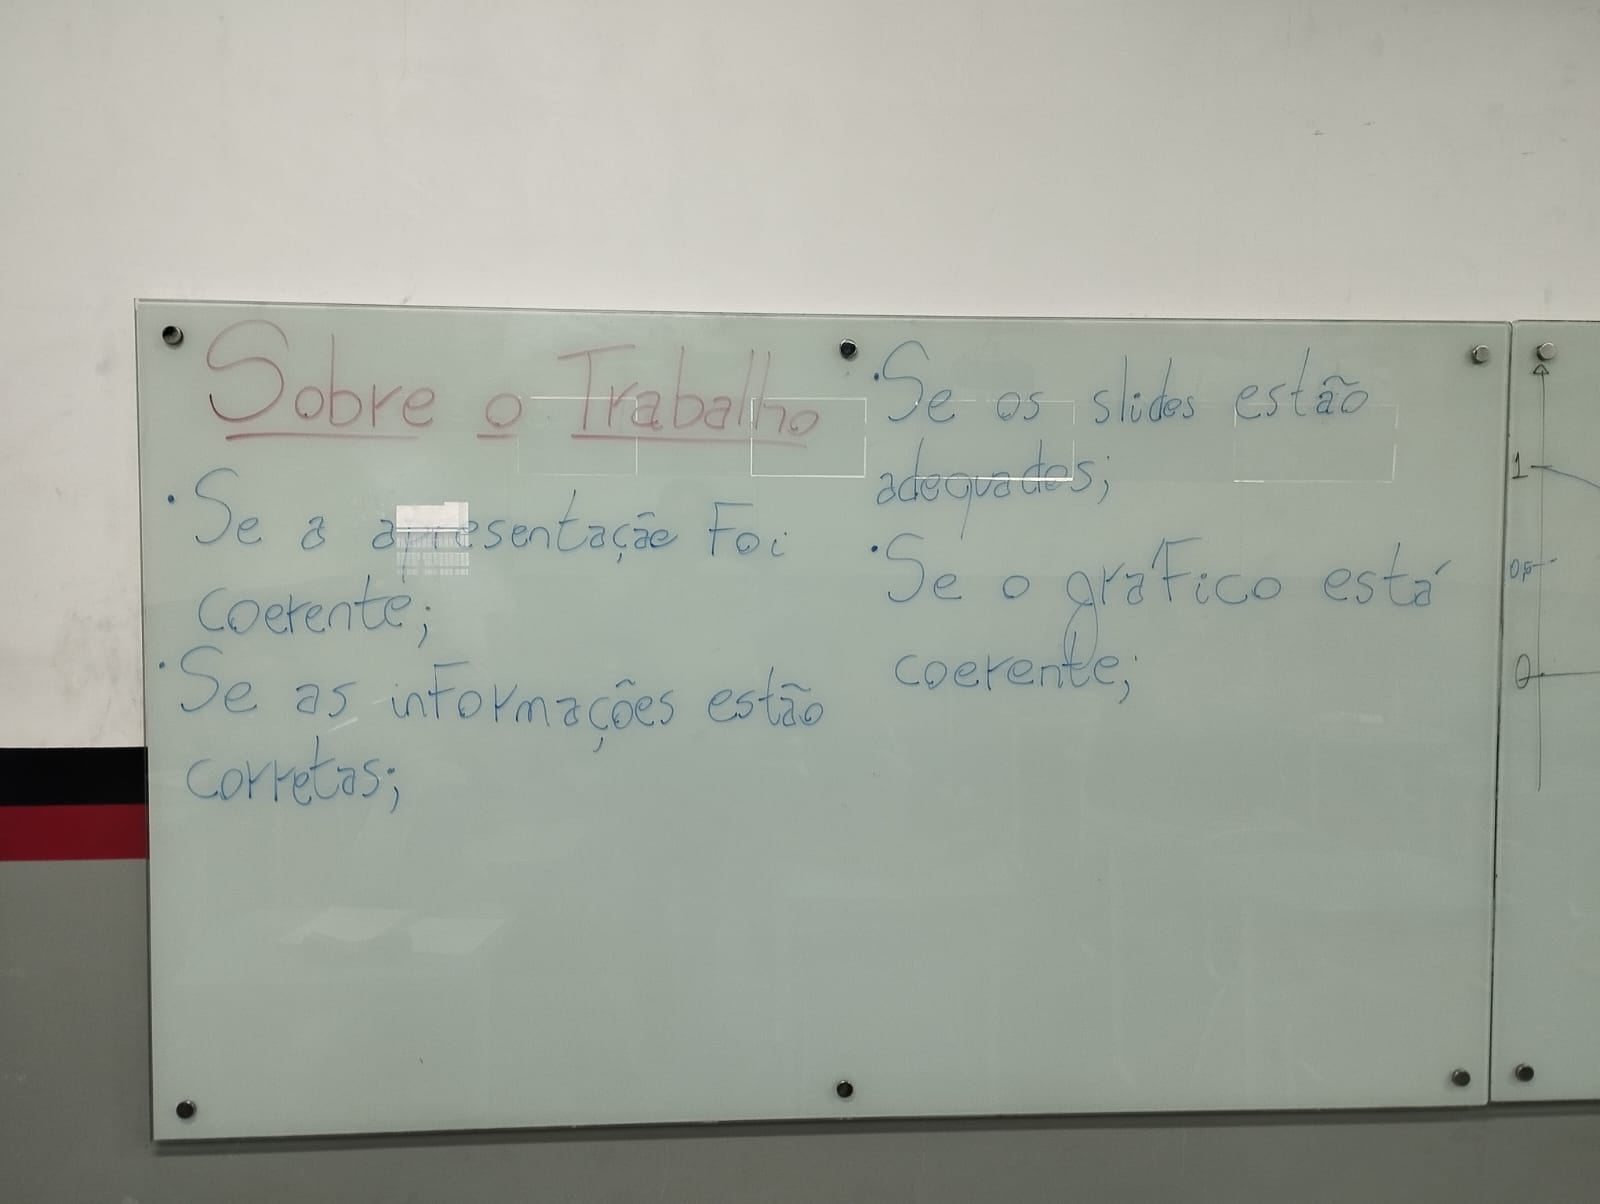 Sobre o Trabalho
• Se a apresentação Foi
coerente;
• Se as informações estão
corretas;
• Se os slides estão
adequados;
• Se o gráfico está
coerente;
1
0,5
0